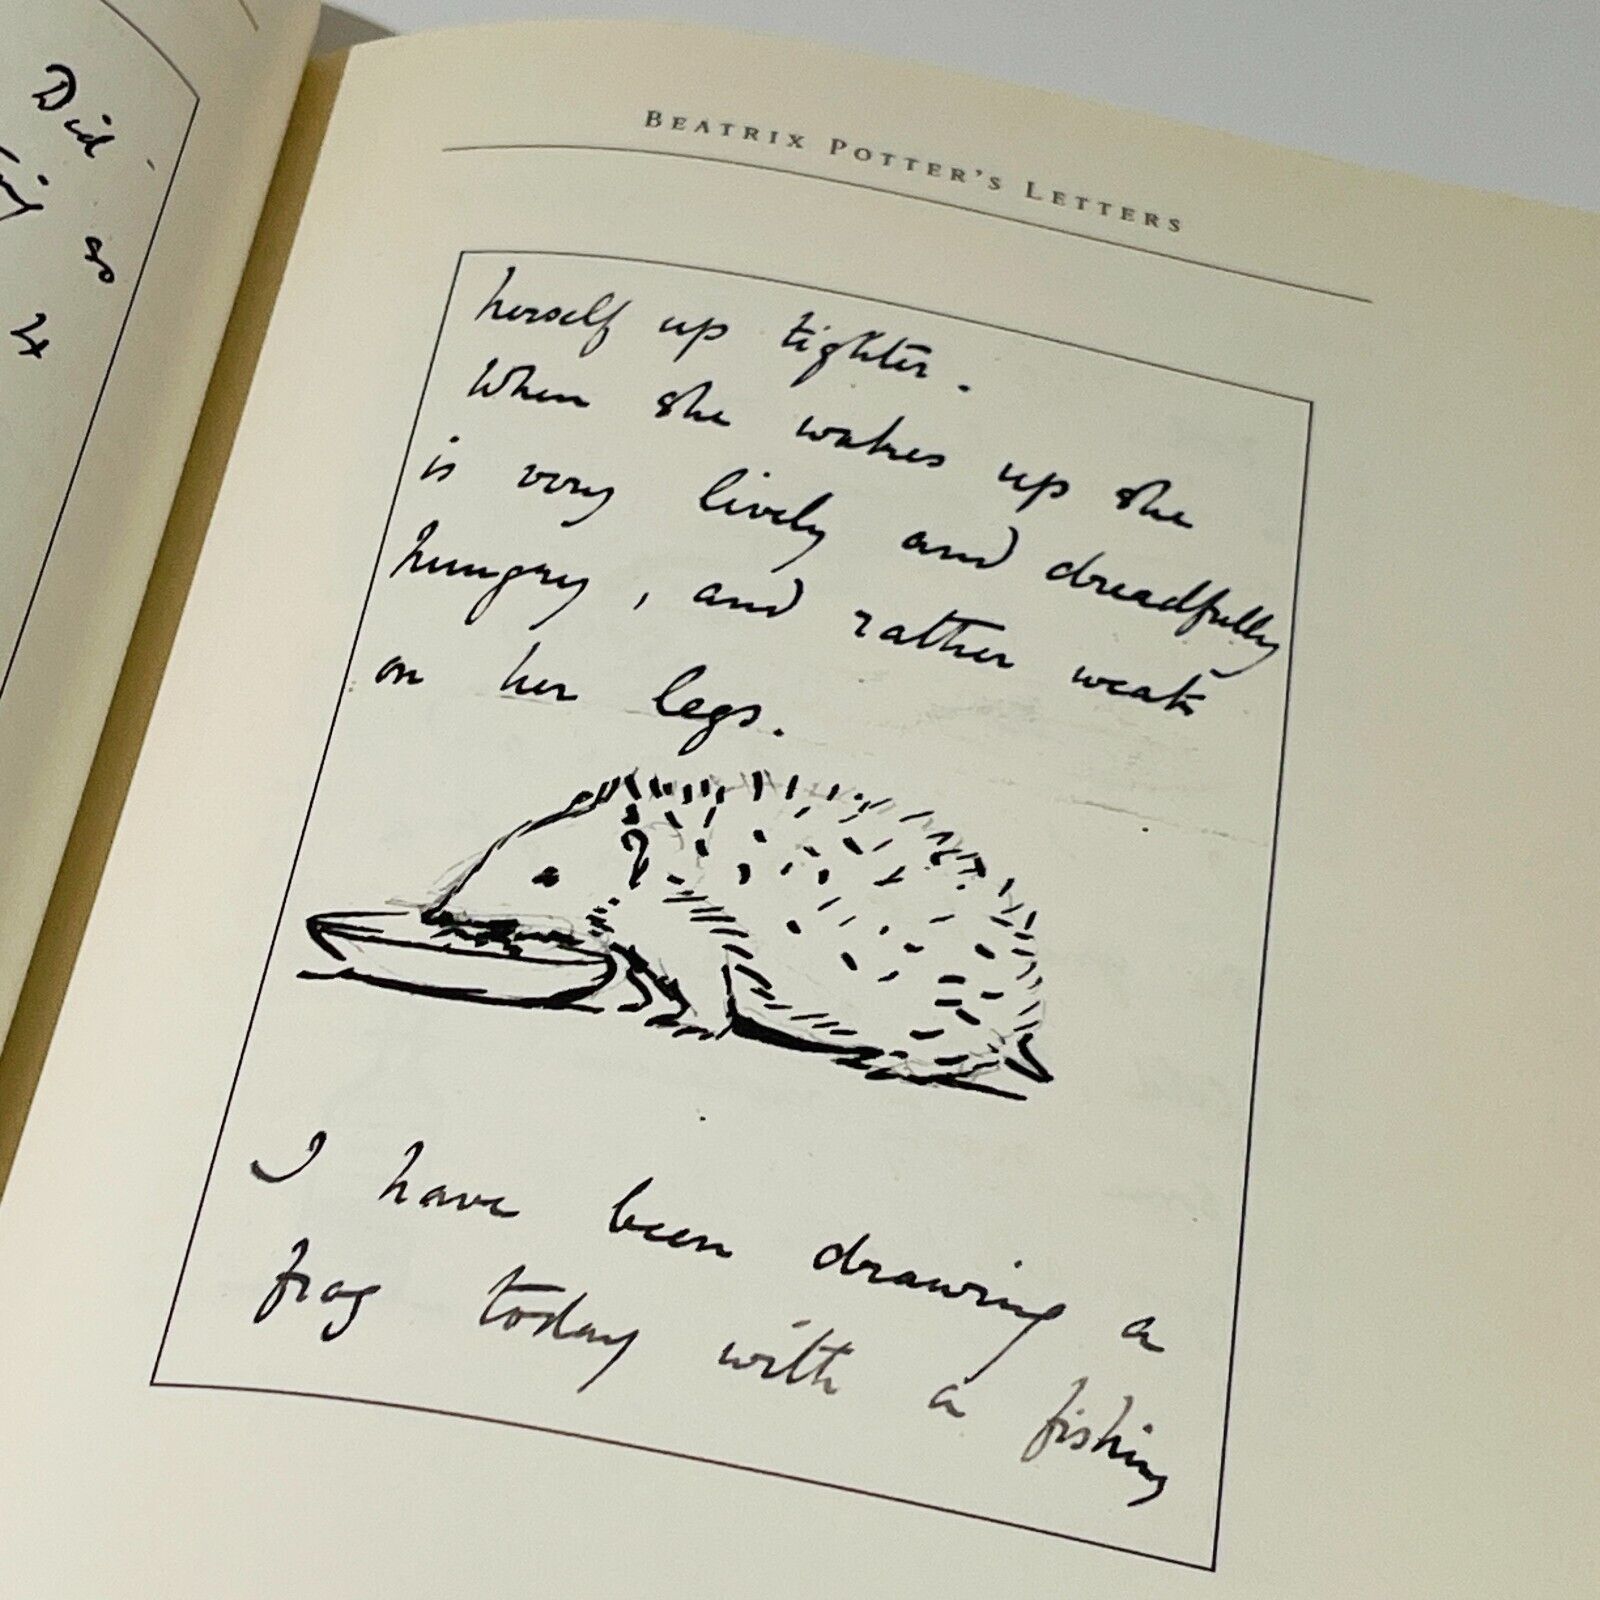 Did
so
BEATRIX POTTER'S LETTERS
herself up tighter.
When she wakes up she
is very lively and dreadfully
hungry, and rather weak
on her legs.
I have been drawing a
frog today with a fishing